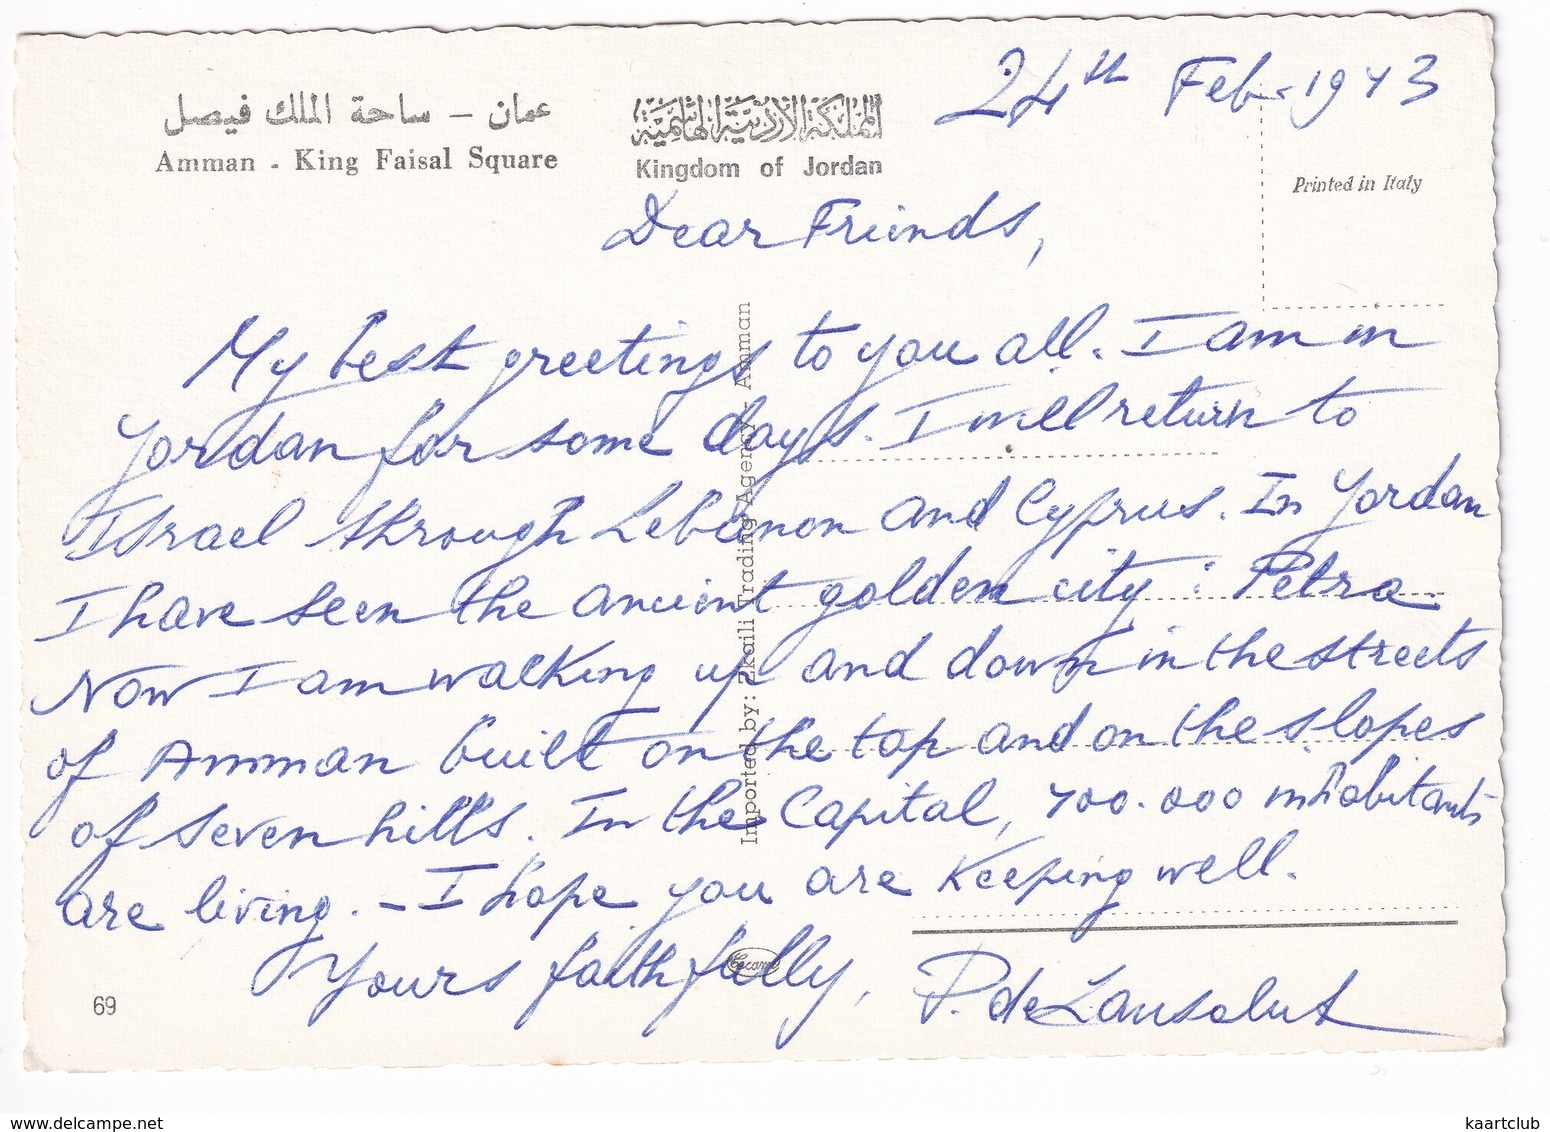 24th Feb-1973
عمان – ساحة الملك فيصل
Amman - King Faisal Square
المملكة الأردنية الهاشمية
Kingdom of Jordan
Printed in Italy
Dear Friends,
My best greetings to you all. I am in
Jordan for some days. I will return to
Israel through Lebanon and Cyprus. In Jordan
I have seen the ancient golden city: Petra.
Now I am walking up and down in the streets
of Amman built on the top and on the slopes
of seven hills. In the Capital, 700.000 inhabitants
are living. – I hope you are keeping well.
Yours faithfully,
P. de
Imported by: Zkaili Trading Agency - Amman
69
www.delcampe.net
kaartclub